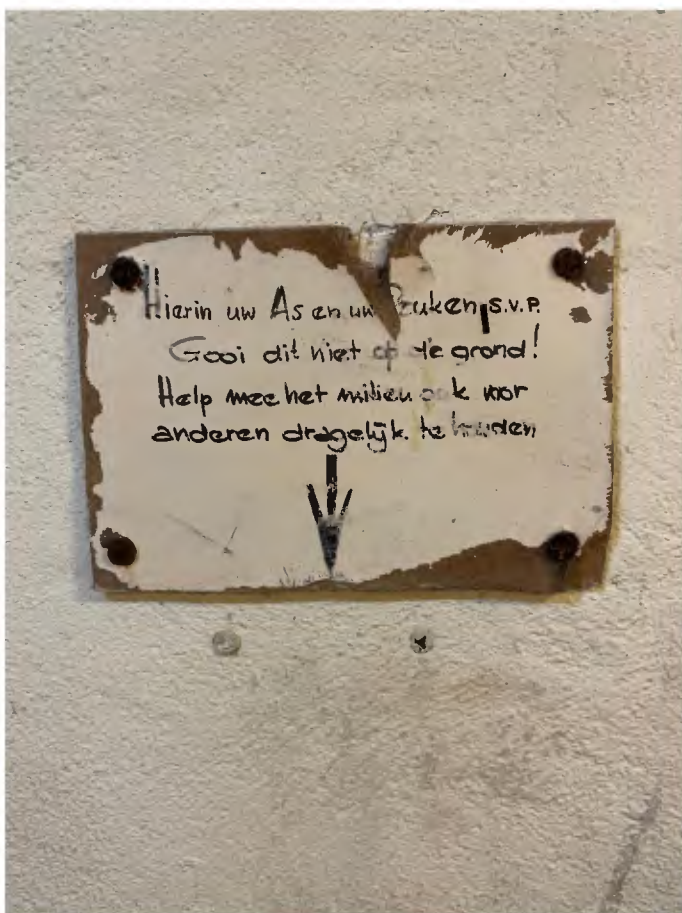 Hierin uw As en uw Peuken, s.v.p.
Gooi dit niet op de grond!
Help mee het milieu ook voor
anderen dragelijk te houden